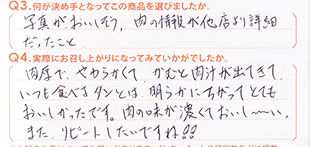 Q3.何が決め手となってこの商品を選びましたか。
写真がおいしそう、肉の情報が他店より詳細
だったこと
Q4.実際にお召し上がりになってみていかがでしたか。
肉厚で、やわらかくて、かむと肉汁が出てきて、
いつも食べるタンとは、明らかにちがってとても
おいしかったです。肉の味が濃くておいし〜い。
また、リピートしたいですね!!